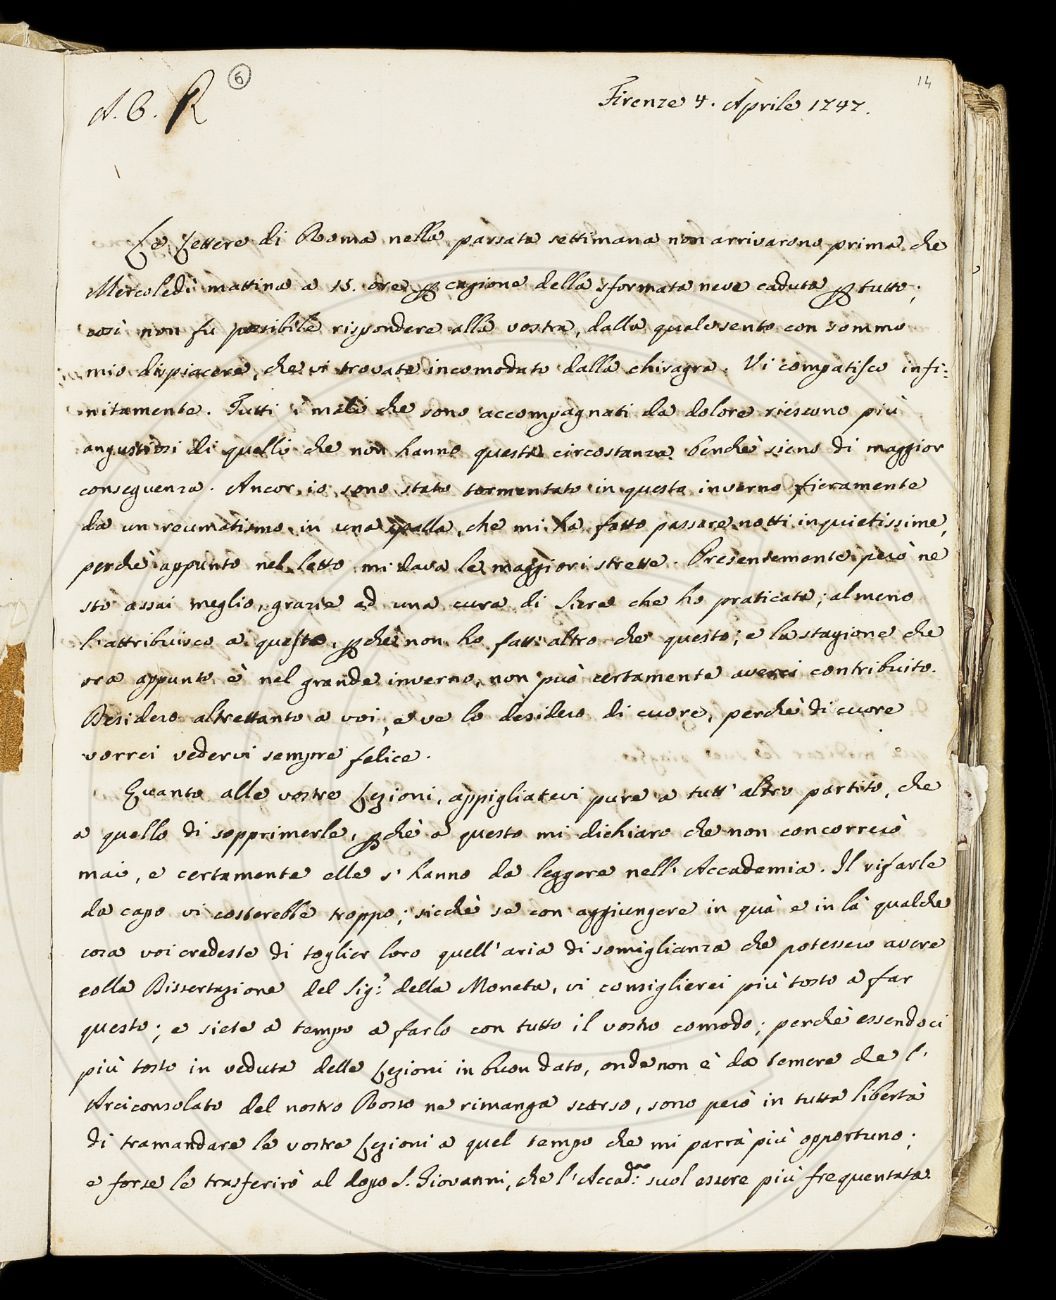 6
14
A. C. R
Firenze 4. Aprile 1747.
Le Lettere di Roma nella passata settimana non arrivarono prima che
Mercoledì mattina a 15. ore p cagione della sformata neve caduta p tutto;
così non fu possibile rispondere alla vostra, dalla quale sento con sommo
mio dispiacere, che vi trovate incomodato dalla chiragra. Vi compatisco infi-
nitamente. Tutti i mali che sono accompagnati da dolore riescono più
angustiosi di quelli che non hanno questa circostanza, benchè sieno di maggior
conseguenza. Ancor io sono stato tormentato in questo inverno fieramente
da un reumatismo in una spalla, che mi ha fatto passare notti inquietissime,
perchè appunto nel letto mi dava le maggiori strette. Presentemente però ne
sto assai meglio, grazie ad una cura di siero che ho praticata; almeno
l'attribuisco a questo, pchè non ho fatt'altro che questo; e la stagione che
ora appunto è nel grande inverno, non può certamente averci contribuito.
Desidero altrettanto a voi, e ve lo desidero di cuore, perchè di cuore
vorrei vedervi sempre felice.
Quanto alle vostre Lezioni, appigliatevi pure a tutt'altro partito, che
a quello di sopprimerle, pchè a questo mi dichiaro che non concorrerò
mai, e certamente elle s'hanno da leggere nell'Accademia. Il rifarle
da capo vi costerebbe troppo; sicchè se con aggiungere in quà e in là qualche
cosa voi credeste di toglier loro quell'aria di somiglianza che potessero avere
colla Dissertazione del Sig.r della Moneta, vi consiglierei più tosto a far
questo; e siete a tempo a farlo con tutto il vostro comodo; perchè essendoci
più tosto in veduta delle Lezioni in buon dato, onde non è da temere che l'
Arciconsolato del nostro Rosso ne rimanga scarso, sono però in tutta libertà
di tramandare le vostre Lezioni a quel tempo che mi parrà più opportuno;
e forse le trasferirò al dopo S. Giovanni, che l'Accad.a suol essere più frequentata.